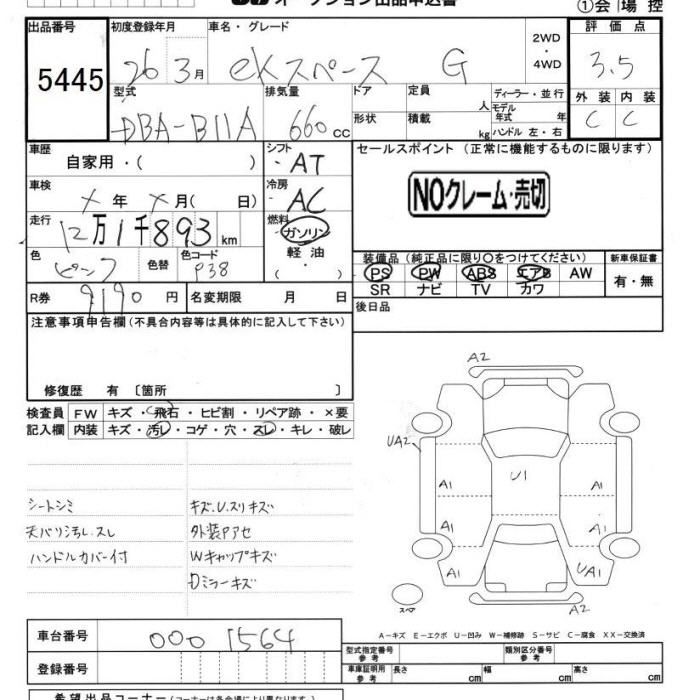 オークション出品申込書
①会場控
出品番号 初度登録年月 車名・グレード 2WD・4WD 評価点
5445 26 3月 eKスペース G 3.5
型式 排気量 ドア 定員 人 ディーラー・並行 外装 内装
DBA-B11A 660cc 形状 積載 kg モデル年式 年 C C
ハンドル 左・右
車歴 自家用・( ) シフト・AT セールスポイント(正常に機能するものに限ります)
車検 メ年 メ月( 日) 冷房・AC NOクレーム・売切
走行 12万1千893km 燃料 ガソリン
軽油
・( )
色 ピンク 色替 色コード P38 装備品(純正品に限り〇をつけてください) 新車保証書
PS PW ABS エアB AW 有・無
SR ナビ TV カワ
R券 9190円 名変期限 月 日 後日品
注意事項申告欄(不具合内容等は具体的に記入して下さい)
修復歴 有 〔箇所 〕
検査員 FW キズ・飛石・ヒビ割・リペア跡・×要
記入欄 内装 キズ・汚レ・コゲ・穴・スレ・キレ・破レ
シートシミ キズ.U.スリキズ
天バリ汚レ.スレ 外装Pアセ
ハンドルカバー付 Wキャップキズ
Dミラーキズ
A2
UA2
U1
A1 A1
A1 A1
A1 UA1
スペア A2
A-キズ E-エクボ U-凹み W-補修跡 S-サビ C-腐食 XX-交換済
車台番号 0001564 型式指定番号 参考 類別区分番号 参考
登録番号 車庫証明用 参考 長さ cm 幅 cm 高さ cm
希望出品コーナー(コーナーは各会場により異なります)